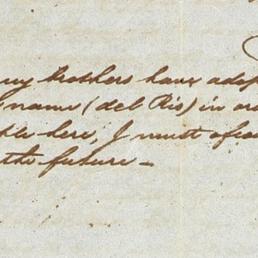 my brothers have adop
name (del Rio) in or
here, I must of co
the future –